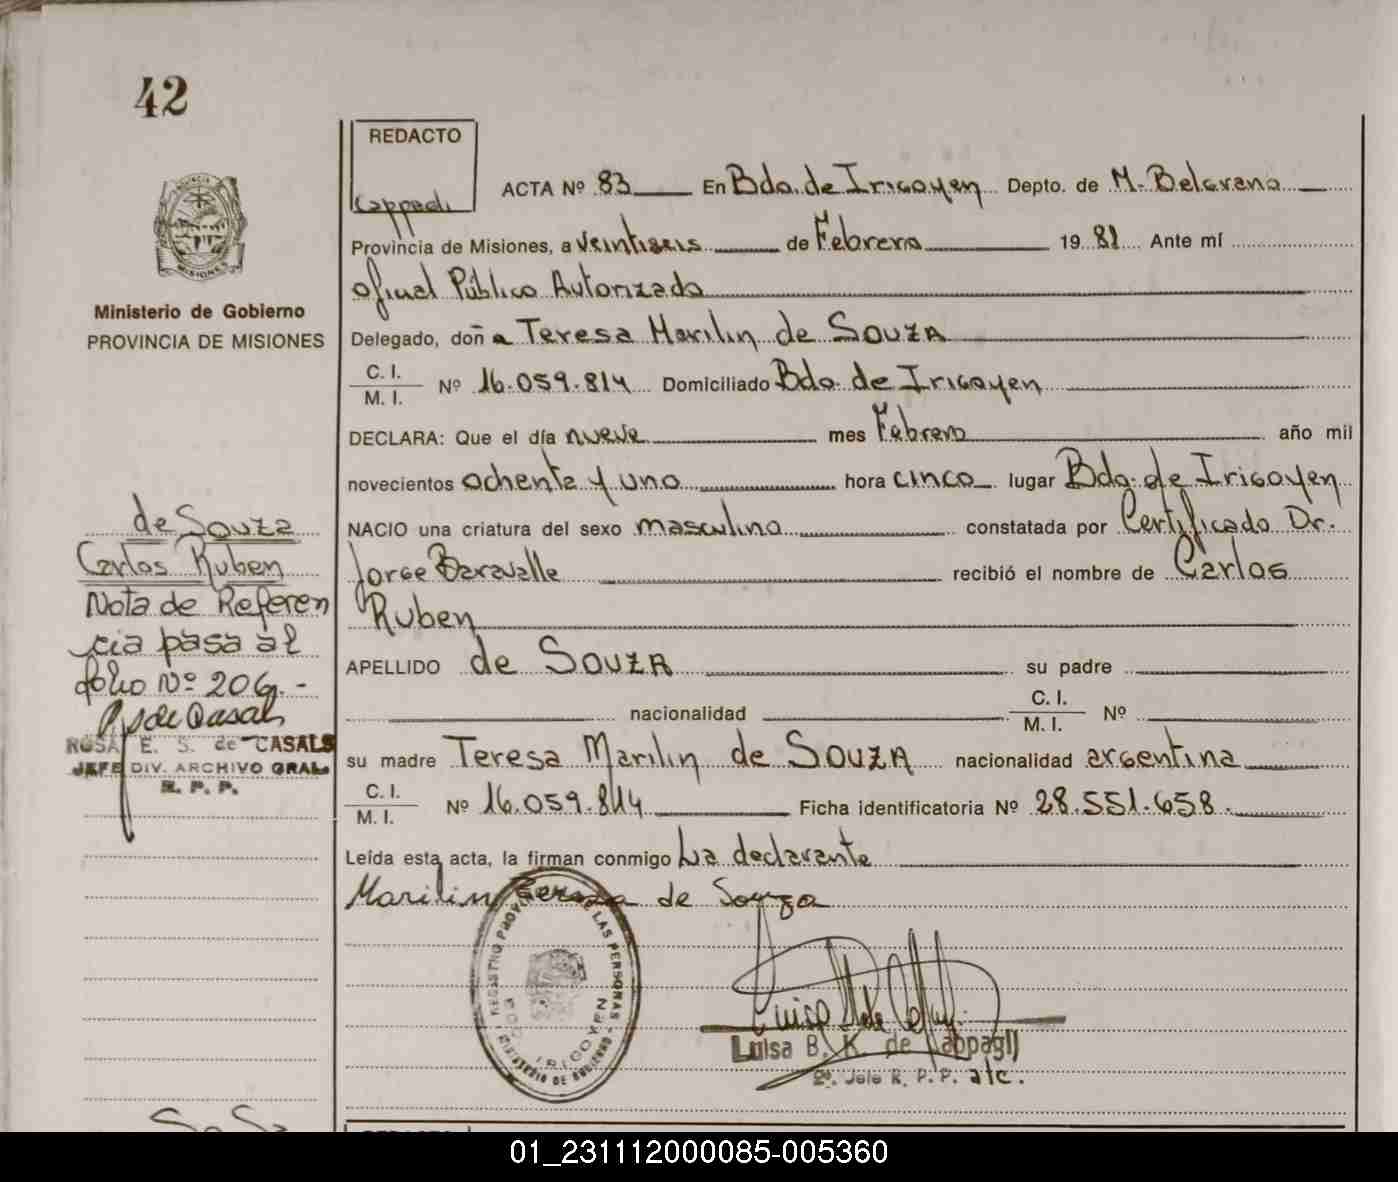 42
REDACTO
Cappagli
ACTA Nº 83 En Bdo. de Irigoyen Depto. de M. Belgrano
Provincia de Misiones, a veintiseis de Febrero 1981 Ante mí
Oficial Público Autorizado
Delegado, doña Teresa Marilin de Souza
C. I.
M. I.
Nº 16.059.814 Domiciliado Bdo. de Irigoyen
DECLARA: Que el día nueve mes Febrero año mil
novecientos ochenta y uno hora cinco lugar Bdo. de Irigoyen
NACIO una criatura del sexo masculino constatada por Certificado Dr.
Jorge Baravalle recibió el nombre de Carlos
Ruben
APELLIDO de Souza su padre
nacionalidad C. I.
M. I. Nº
su madre Teresa Marilin de Souza nacionalidad argentina
C. I.
M. I.
Nº 16.059.814 Ficha identificatoria Nº 28.551.658.
Leída esta acta, la firman conmigo La declarante
Marilin Teresa de Souza
REGISTRO PROV. DE LAS PERSONAS
BDO. IRIGOYEN
MINISTERIO DE GOBIERNO
Luisa B. K. de Cappagli
2º. Jefe R. P. P. a/c.
MISIONES
Ministerio de Gobierno
PROVINCIA DE MISIONES
de Souza
Carlos Ruben
Nota de Referen
cia pasa al
folio Nº 206.-
ROSA E. S. de CASALS
JEFE DIV. ARCHIVO GRAL.
R. P. P.
01_231112000085-005360